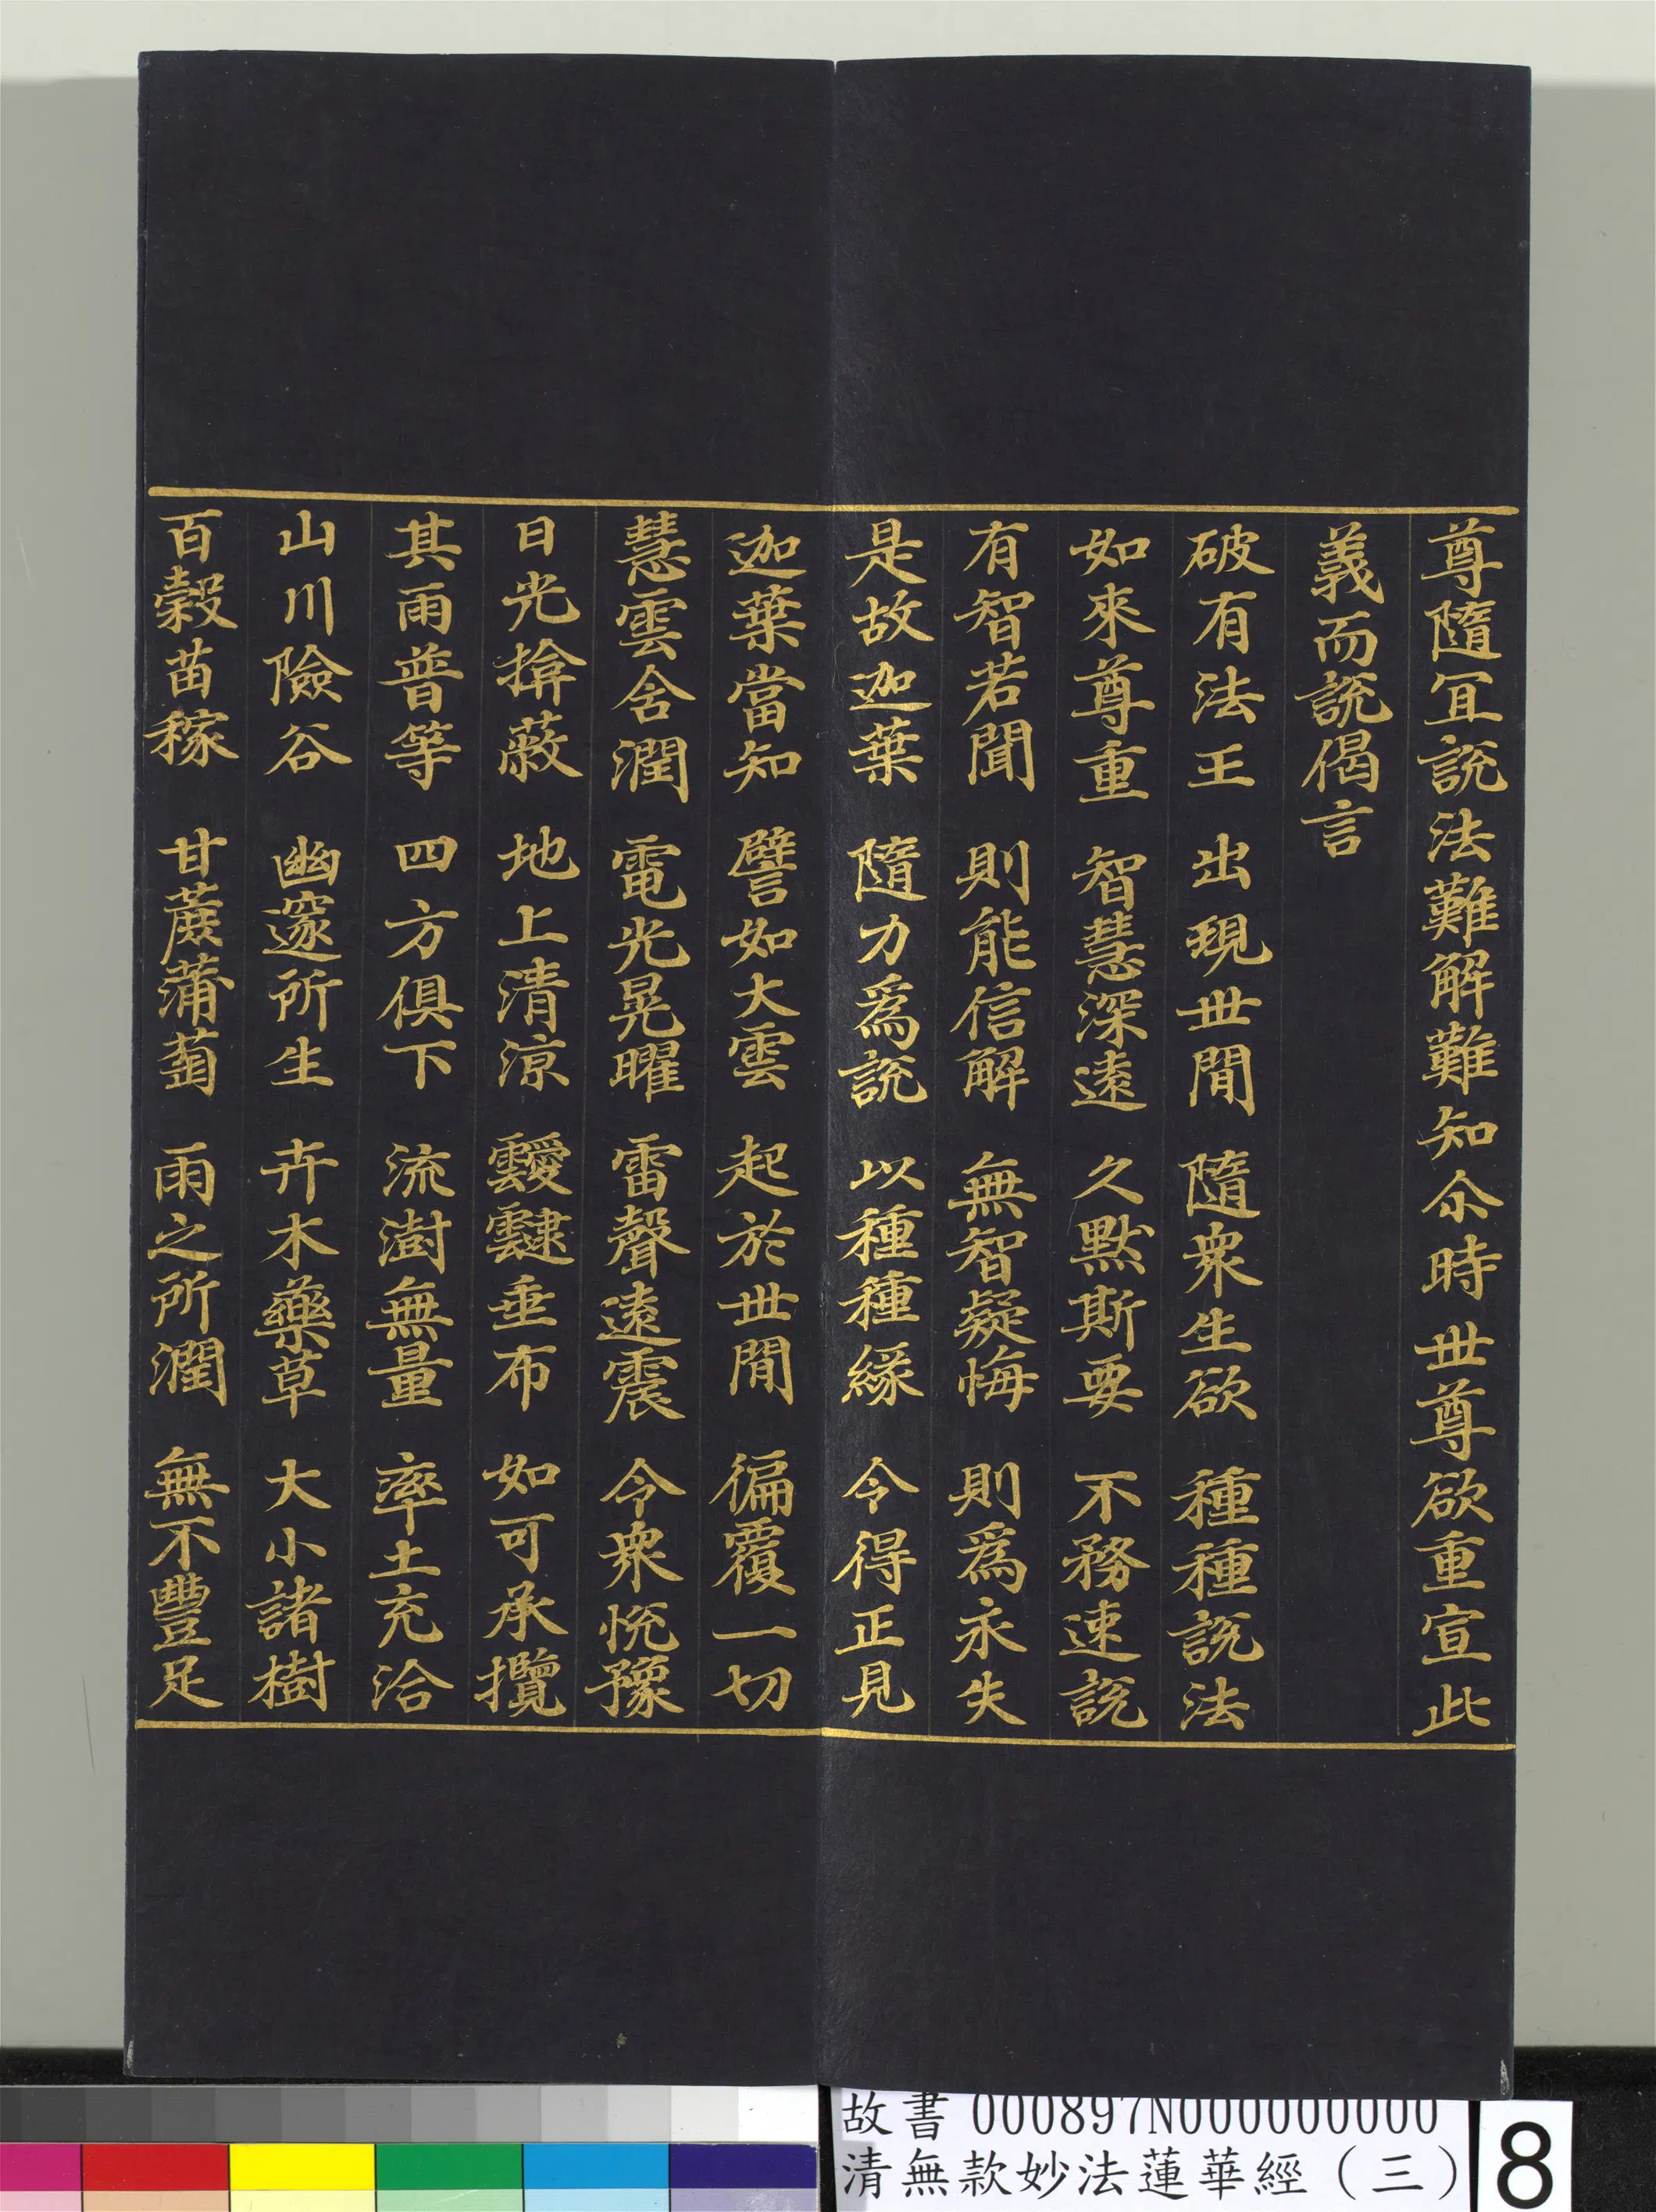 尊隨冝說法難解難知尒時世尊欲重宣此
義而說偈言
破有法王　出現世閒　隨衆生欲　種種說法
如來尊重　智慧深遠　久默斯要　不務速說
有智若聞　則能信解　無智疑悔　則爲永失
是故迦葉　隨力爲說　以種種緣　令得正見
迦葉當知　譬如大雲　起於世閒　徧覆一切
慧雲含潤　電光晃曜　雷聲遠震　令衆悅豫
日光揜蔽　地上清涼　靉靆垂布　如可承攬
其雨普等　四方俱下　流澍無量　率土充洽
山川險谷　幽邃所生　卉木藥草　大小諸樹
百穀苗稼　甘蔗蒲萄　雨之所潤　無不豐足
故書 000897N000000000
清無款妙法蓮華經（三）
8